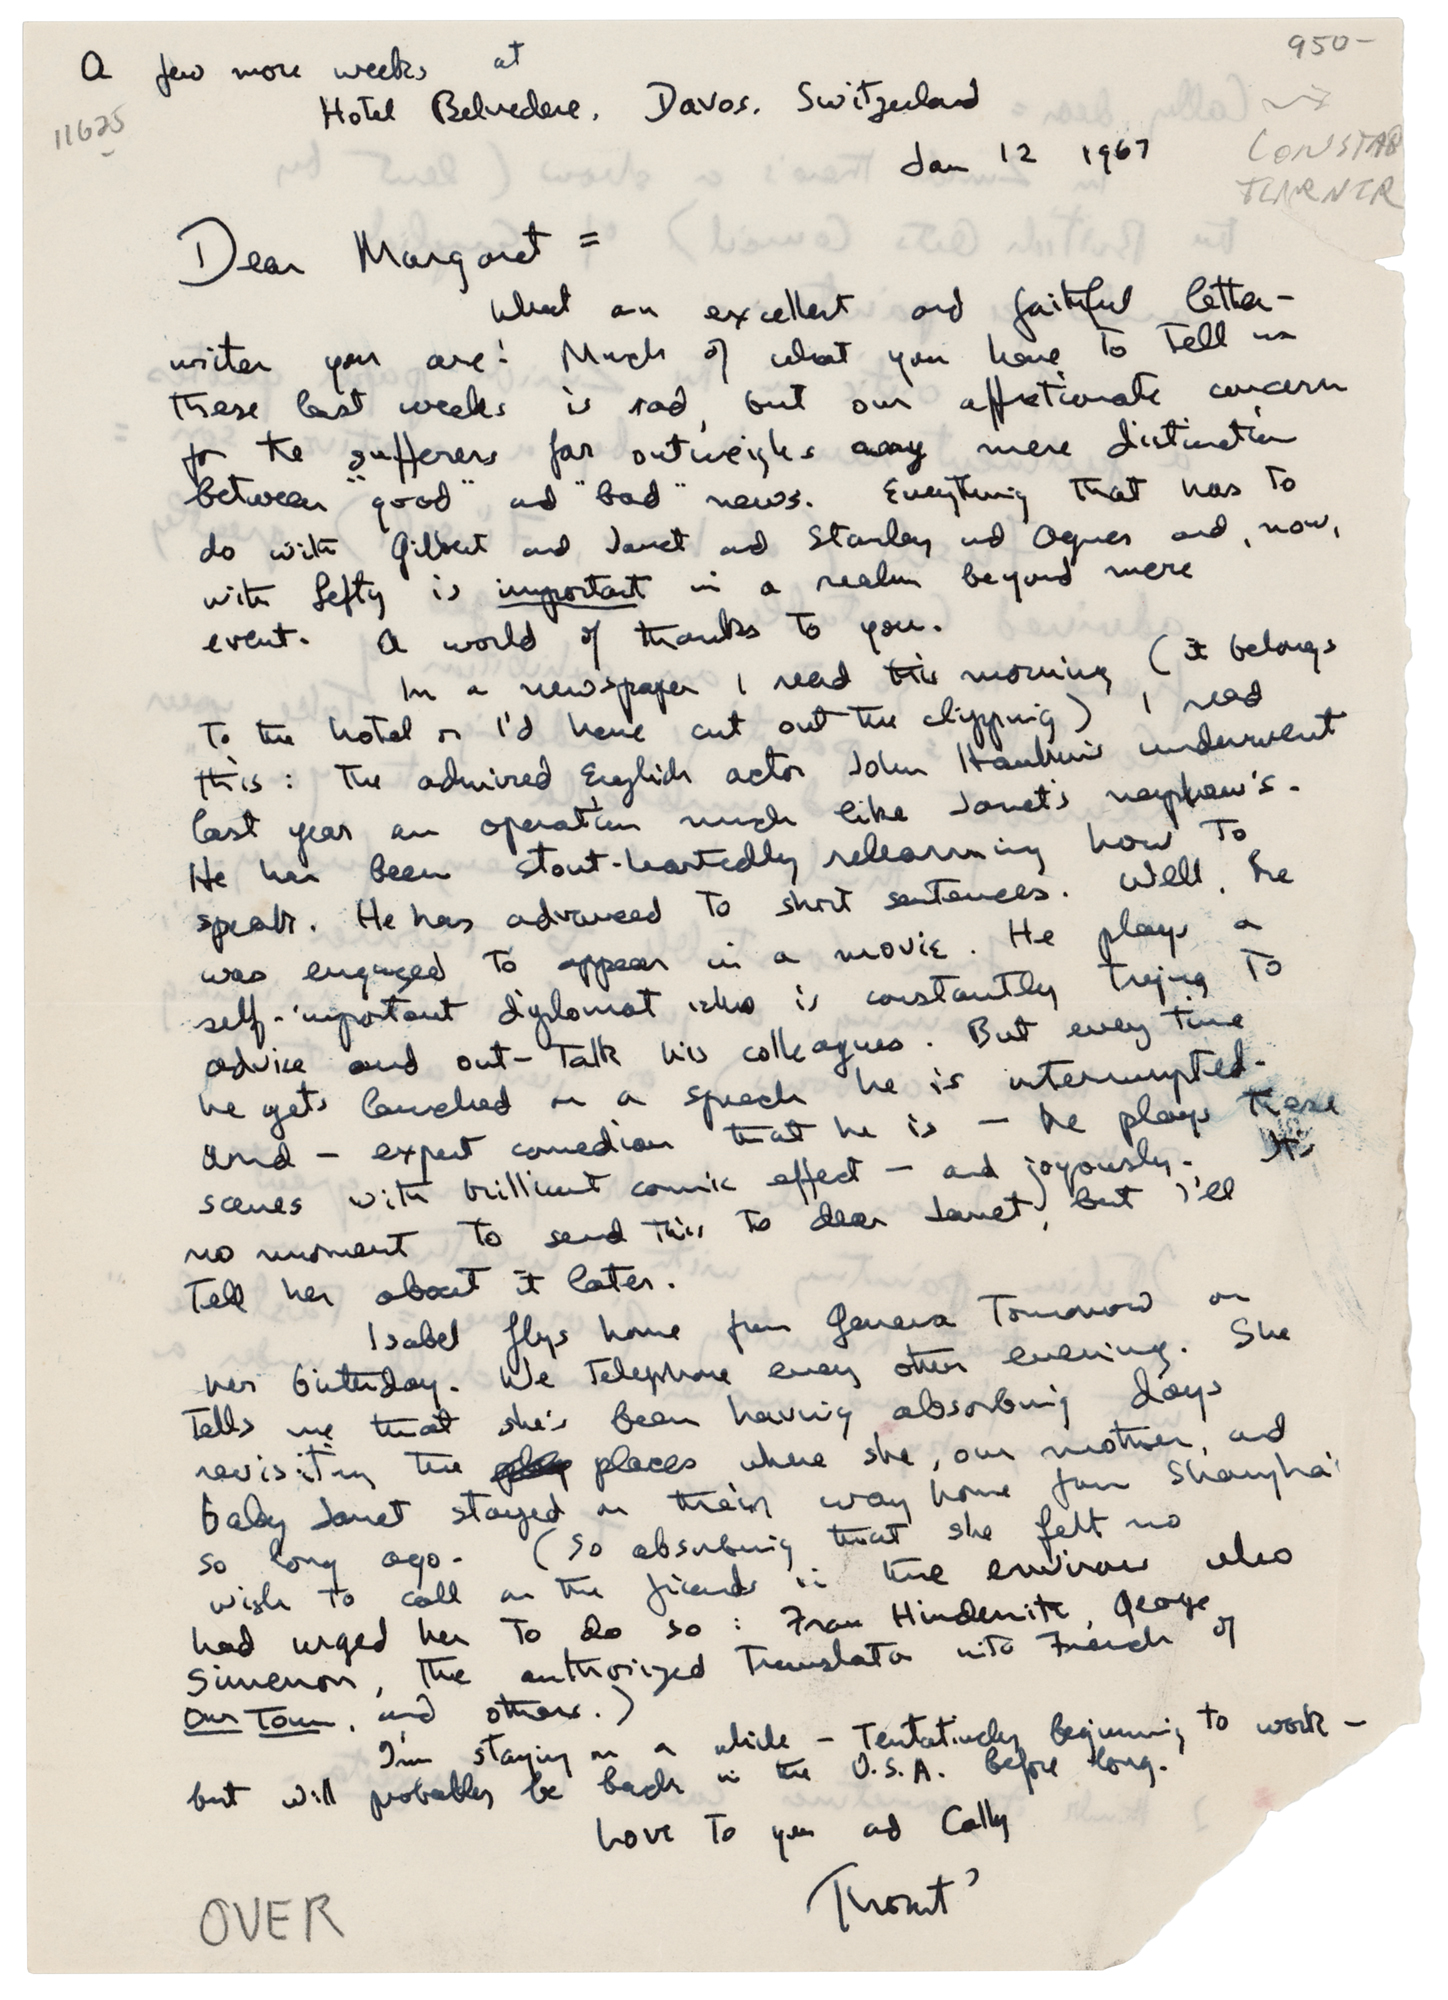 950-
A few more weeks at
Hotel Belvedere, Davos, Switzerland
11625
Jan 12 1967
CONSTAB
TURNER
Dear Margaret =
What an excellent and faithful letter-
writer you are! Much of what you have to tell us
these last weeks is sad, but our affectionate concern
for the sufferers far outweighs away mere distinction
between "good" and "bad" news. Everything that has to
do with Gilbert and Janet and Stanley and Agnes and, now,
with Lefty is important in a realm beyond mere
event. A world of thanks to you.
In a newspaper I read this morning (it belongs
to the hotel or I'd have cut out the clipping) I read
this: the admired English actor John Hawkins underwent
last year an operation much like Janet's nephew's.
He has been stout-heartedly relearning how to
speak. He has advanced to short sentences. Well, he
was engaged to appear in a movie. He plays a
self-important diplomat who is constantly trying to
advice and out-talk his colleagues. But every time
he gets launched on a speech he is interrupted-
and – expert comedian that he is – he plays these
scenes with brilliant comic effect – and joyously. It's
no moment to send this to dear Janet, but I'll
tell her about it later.
Isabel flys home from Geneva tomorrow on
her birthday. We telephone every other evening. She
tells me that she's been having absorbing days
revisiting the places where she, our mother, and
baby Janet stayed on their way home from Shanghai
so long ago. (So absorbing that she felt no
wish to call on the friends in the environs who
had urged her to do so: Frau Hindemith, George
Simenon, the authorized translator into French of
Our Town, and others.)
I'm staying on a while – tentatively beginning to work –
but will probably be back in the U.S.A. before long.
Love to you and Cally
Thornt'
OVER